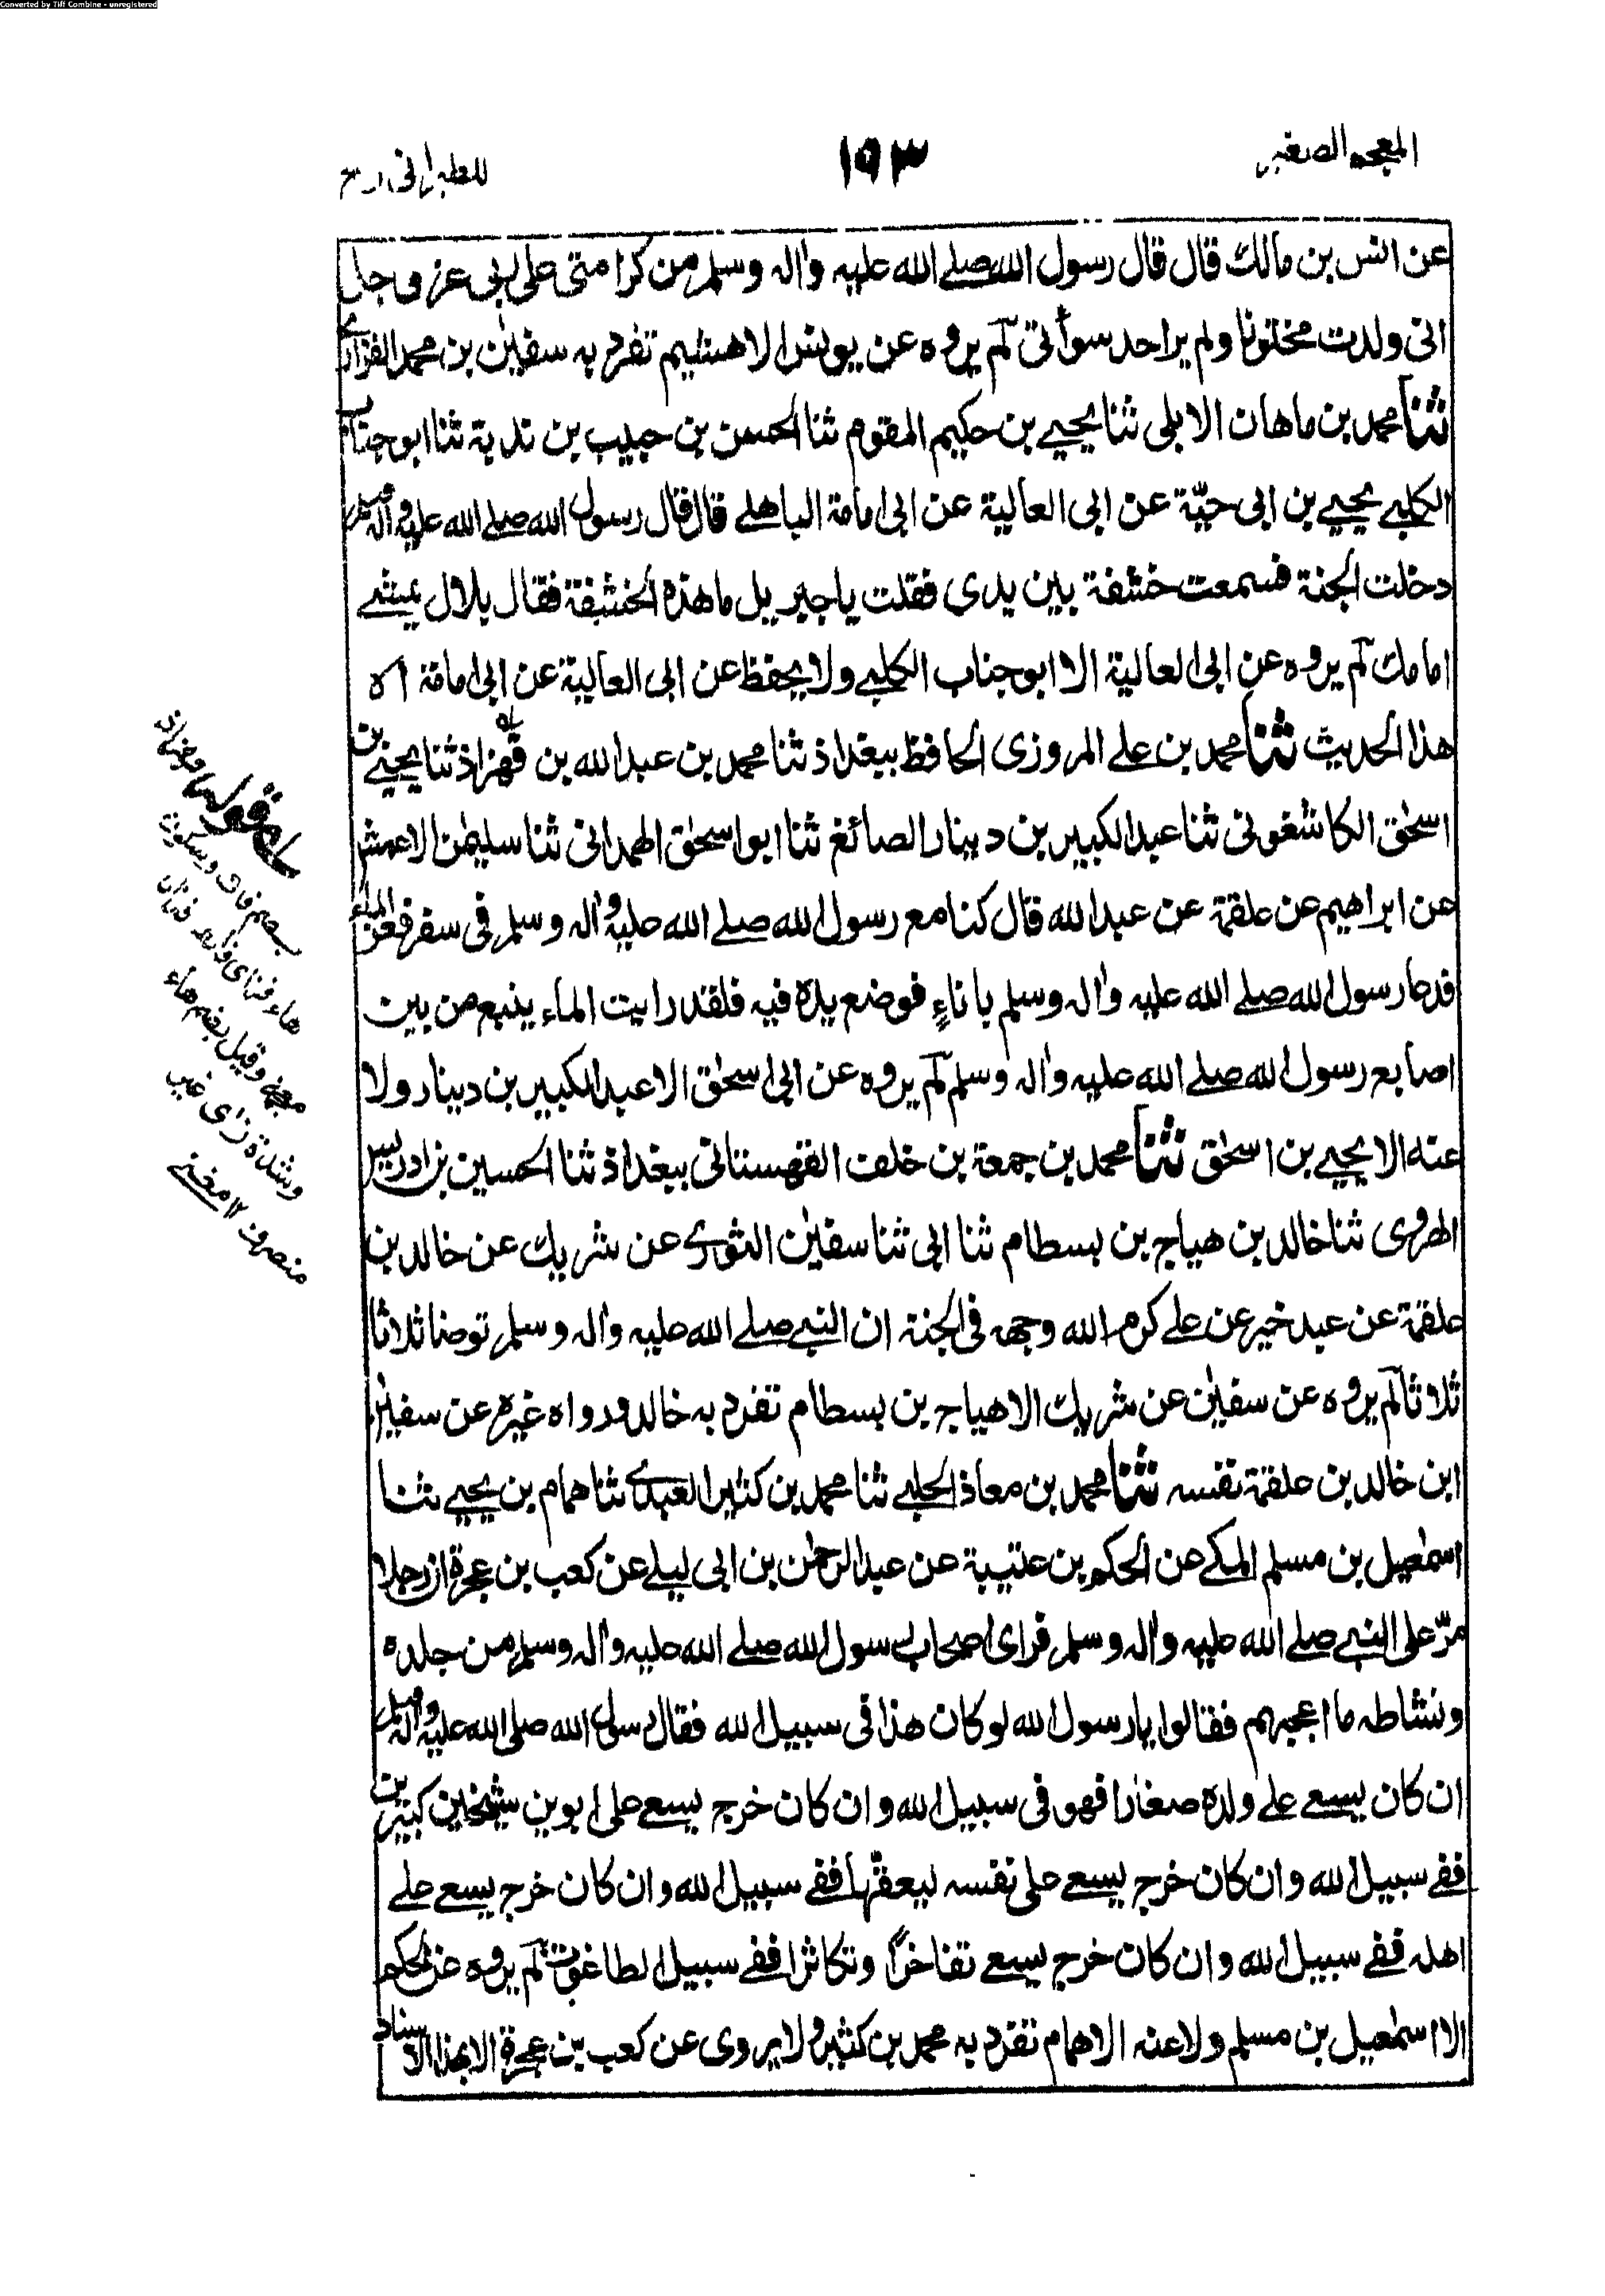 Converted by Tiff Combine - unregistered
المعجم الصغير
١٩٣
للطبرانی رح
عن انس بن مالك قال قال رسول الله صلے الله عليه واٰله وسلم من كرامتی علی ربی عز وجل
انی ولدت مختونا ولم يراحد سوأتی لم يروه عن يونس الا هشيم تفرد به سفيٰن بن محمد الفزاری
ثنا محمد بن ماهان الابلی ثنا يحيے بن حكيم المقوم ثنا الحسن بن حبيب بن ندبة ثنا ابو جناب
الكلبے يحيے بن ابی حيّة عن ابی العالية عن ابی امامة الباهلے قال قال رسول الله صلے الله عليه واٰله وسلم
دخلت الجنة فسمعت خشفة بين يدی فقلت يا جبريل ما هذه الخشفة فقال بلال يمشے
امامك لم يروه عن ابی العالية الا ابو جناب الكلبے ولا يحفظ عن ابی العالية عن ابی امامة الا
هذا الحديث ثنا محمد بن علے المروزی الحافظ ببغداذ ثنا محمد بن عبد الله بن قهزاذ ثنا يحيے بن
اسحٰق الكاشغونی ثنا عبد الكبير بن دينار الصائغ ثنا ابو اسحٰق الهمدانی ثنا سليمٰن الاعمش
عن ابراهيم عن علقمة عن عبد الله قال كنا مع رسول الله صلے الله عليه واٰله وسلم فی سفر فعز الماء
فدعا رسول الله صلے الله عليه واٰله وسلم باناءٍ فوضع يده فيه فلقد رايت الماء ينبع من بين
اصابع رسول الله صلے الله عليه واٰله وسلم لم يروه عن ابی اسحٰق الا عبد الكبير بن دينار ولا
عنه الا يحيے بن اسحٰق ثنا محمد بن جمعة بن خلف القهستانی ببغداذ ثنا الحسين بن ادريس
الهروی ثنا خالد بن هياج بن بسطام ثنا ابی ثنا سفيٰن الثوری عن شريك عن خالد بن
علقمة عن عبد خير عن علے كرم الله وجهه فی الجنة ان النبے صلے الله عليه واٰله وسلم توضا ثلاثا
ثلاثا لم يروه عن سفيٰن عن شريك الا هياج بن بسطام تفرد به خالد ورواه غيره عن سفيٰن
ابن خالد بن علقمة نفسه ثنا محمد بن معاذ الحلبے ثنا محمد بن كثير العبدی ثنا همام بن يحيے ثنا
اسمٰعيل بن مسلم المكے عن الحكم بن عتيبة عن عبد الرحمٰن بن ابی ليلے عن كعب بن عجرة ان رجلا
مرّ علی النبے صلے الله عليه واٰله وسلم فرای اصحاب رسول الله صلے الله عليه واٰله وسلم من جلده
ونشاطه ما اعجبهم فقالوا يا رسول الله لو كان هذا فی سبيل الله فقال رسول الله صلی الله عليه واٰله وسلم
ان كان يسعے علے ولده صغارا فهو فی سبيل الله وان كان خرج يسعے علی ابوين شيخين كبيرين
ففے سبيل الله وان كان خرج يسعے علی نفسه ليعفّها ففے سبيل الله وان كان خرج يسعے علے
اهله ففے سبيل الله وان كان خرج يسعے تفاخرًا وتكاثرا ففے سبيل الطاغوت لم يروه عن الحكم
الا اسمٰعيل بن مسلم ولا عنه الا همام تفرد به محمد بن كثير ولا يروی عن كعب بن عجرة الا بهذا الاسناد
قوله قهزاذ
بضم قاف وسكون
هاء فزای
معجمة وقيل بضم هاء
وشدة زای غير
منصرف ١٢ مغنے